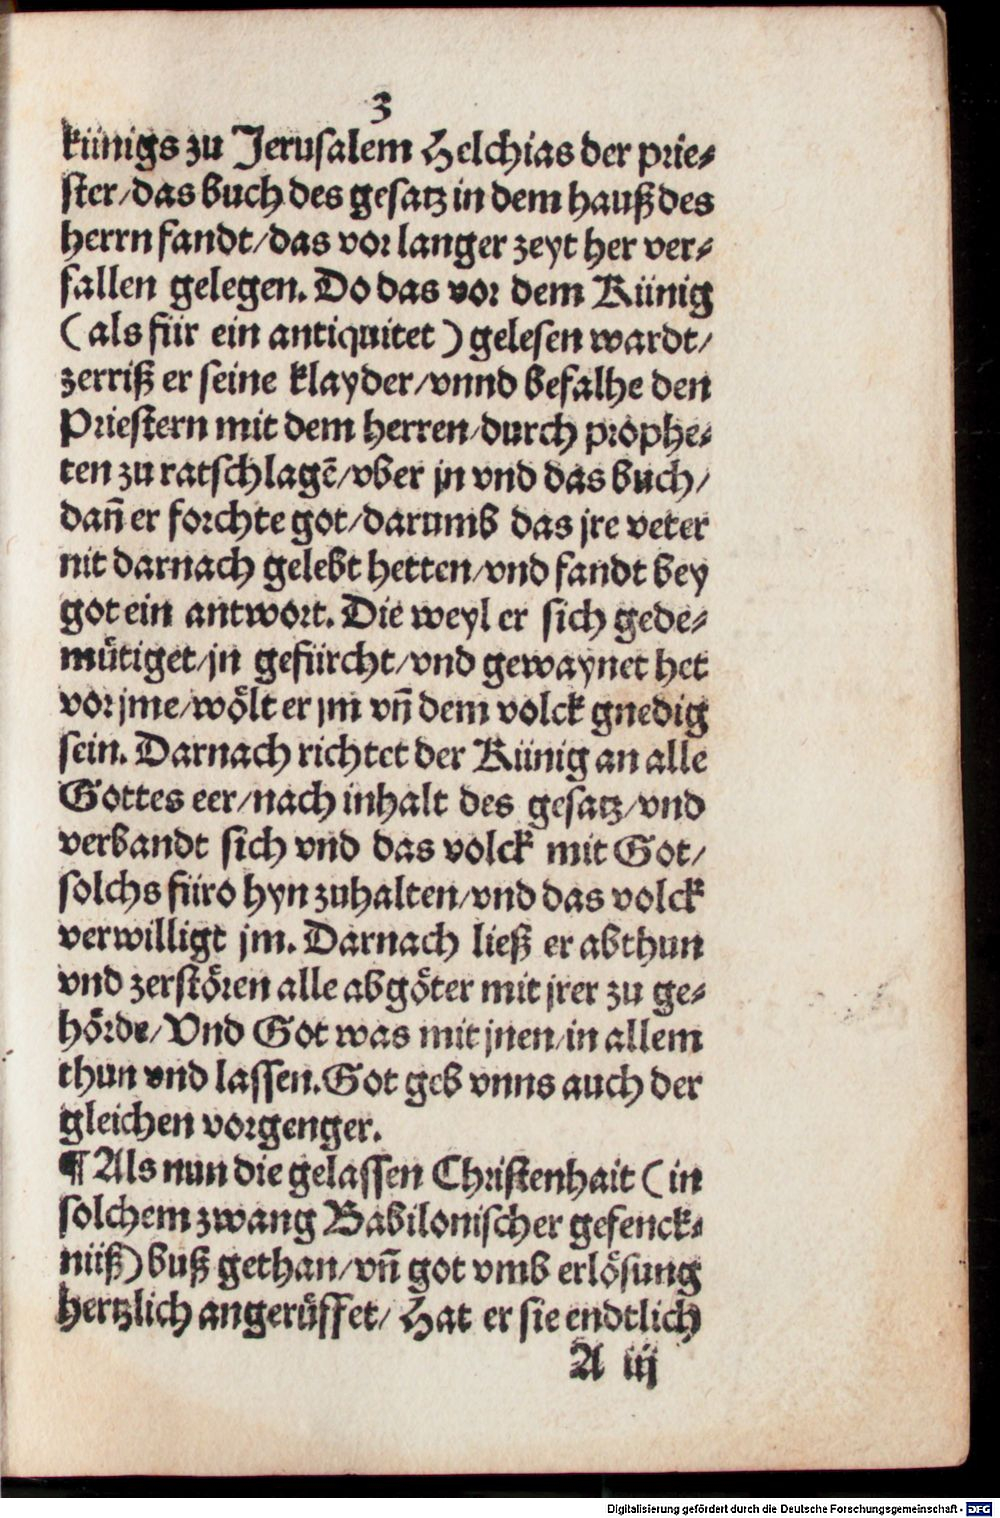 3
künigs zu Jerusalem Helchias der prie⸗
ster/das buch des gesatz in dem hauß des
herrn fandt/das vor langer zeyt her ver⸗
fallen gelegen. Do das vor dem Künig
(als für ein antiquitet) gelesen wardt/
zerriß er seine klayder/vnnd befalhe den
Priestern mit dem herren/durch prophe⸗
ten zu ratschlagē/vber jn vnd das buch/
dañ er forchte got/darumb das jre veter
nit darnach gelebt hetten/vnd fandt bey
got ein antwort. Die weyl er sich gede⸗
mütiget/jn gefürcht/vnd gewaynet het
vor jme/wölt er jm vñ dem volck gnedig
sein. Darnach richtet der Künig an alle
Gottes eer/nach inhalt des gesatz/vnd
verbandt sich vnd das volck mit Got/
solchs füro hyn zuhalten/vnd das volck
verwilligt jm. Darnach ließ er abthun
vnd zerstören alle abgöter mit jrer zu ge⸗
hörde/Vnd Got was mit jnen/in allem
thun vnd lassen. Got geb vnns auch der
gleichen vorgenger.
¶ Als nun die gelassen Christenhait (in
solchem zwang Babilonischer gefenck⸗
nüß) buß gethan/vñ got vmb erlösung
hertzlich angerüffet/Hat er sie endtlich
A iij
Digitalisierung gefördert durch die Deutsche Forschungsgemeinschaft - DFG